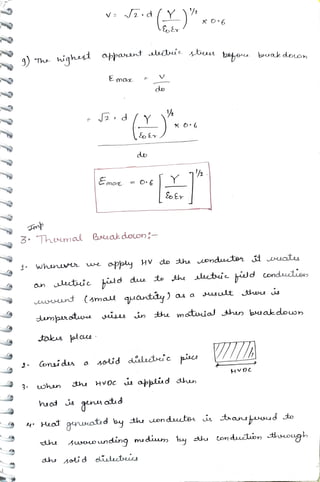 V = √2 · d (Y / ε0εr)^1/2 × 0·6
9) The highest apparent electric stress before breakdown
E max = V / do
= √2 · d (Y / ε0εr)^1/2 × 0·6 / do
Emax = 0·6 [Y / ε0εr]^1/2
Imp
3. Thermal Breakdown:-
1. Whenever we apply HV do the conductor it creates
an electric field due to the electric field conduction
current (small quantity) as a result there is
temperature rises in the material then breakdown
takes place.
2. Consider a solid dielectric piece
HVDC
3. when the HVDC is applied then
heat is generated
4. Heat generated by the conductor is transferred to
the surrounding medium by the conduction through
the solid dielectrics